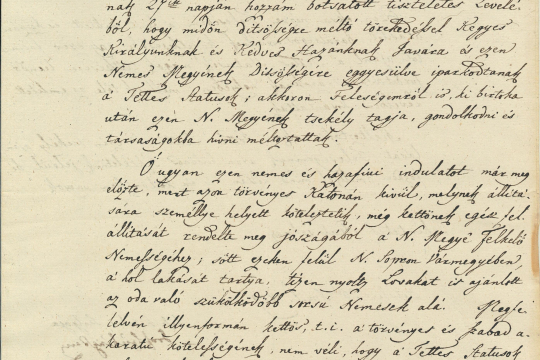 nak 27dik napján hozzám botsatott tiszteletes Levelé-
ből, hogy midőn ditsősségre méltó törekedéssel Kegyes
Királyunknak és Kedves Hazánknak Javára és ezen
Nemes Megyének Ditsősségire eggyesülve iparkodtanak
a Tettes Státusok; akkoron Feleségemről is, ki birtoka
után ezen N. Megyének tsekély tagja, gondolkodni és
társaságokba hívni méltóztattak.
Ő ugyan ezen nemes és hazafiúi indulatot már meg
előzte, mert azon törvényes Katonán kívül, melynek állitá-
sára személlye helyett köteleztetik, még kettőnek egész fel
állitását rendelte meg jószágából a N. Megye Felkelő
Nemességihez; sőtt ezeken felül N. Sopron Vármegyében
a hol lakását tartja, tizen nyoltz Lovakat is ajánlott
az oda való szűkölködőbb sorsú Nemesek alá. Megfe
lelvén illyenformán kettős, t. i. a törvényes és szabad a-
karatú kötelességének, nem véli, hogy a Tettes Státusok